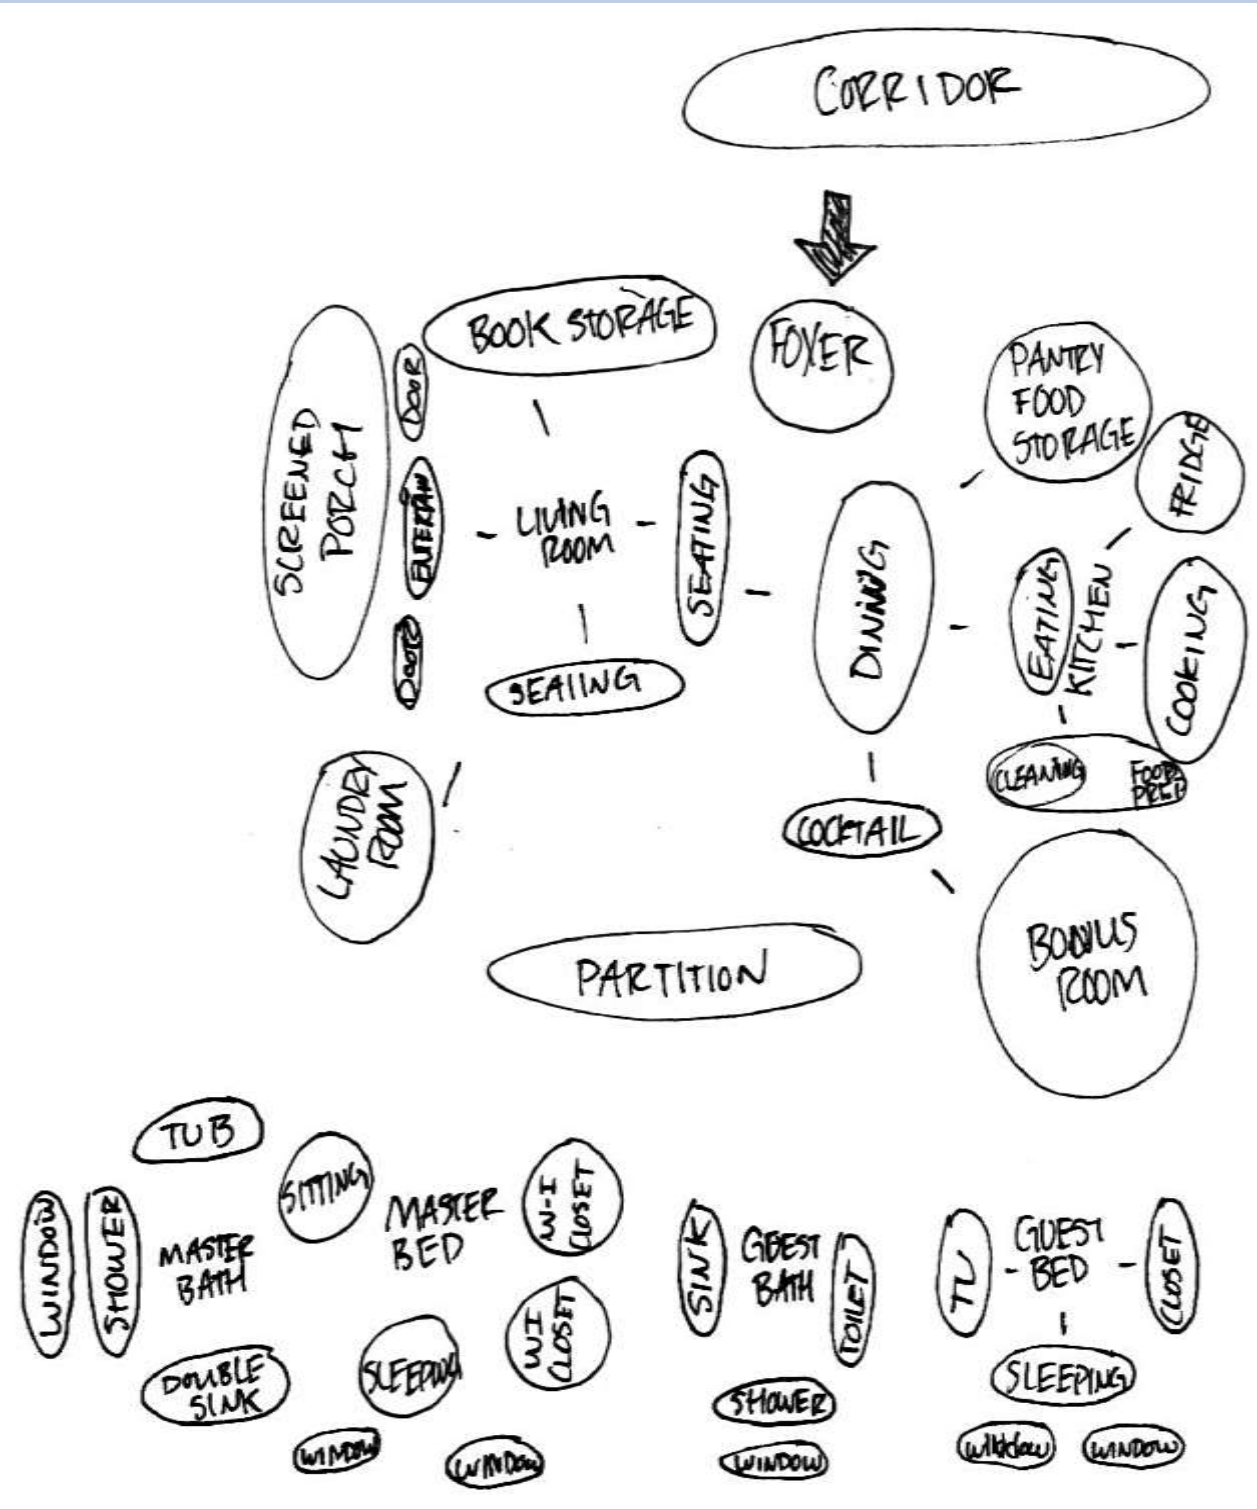 CORRIDOR
BOOK STORAGE
FOYER
PANTRY
FOOD
STORAGE
FRIDGE
SCREENED
PORCH
DOOR
ENTERTAIN
DOOR
LIVING
ROOM
SEATING
SEATING
DINING
EATING
KITCHEN
COOKING
CLEANING
FOOD
PREP
LAUNDRY
ROOM
COCKTAIL
PARTITION
BONUS
ROOM
TUB
SITTING
MASTER
BED
W-I
CLOSET
WI
CLOSET
WINDOW
SHOWER
MASTER
BATH
DOUBLE
SINK
SLEEPING
WINDOW
WINDOW
SINK
GUEST
BATH
TOILET
SHOWER
WINDOW
TV
GUEST
BED
CLOSET
SLEEPING
WINDOW
WINDOW